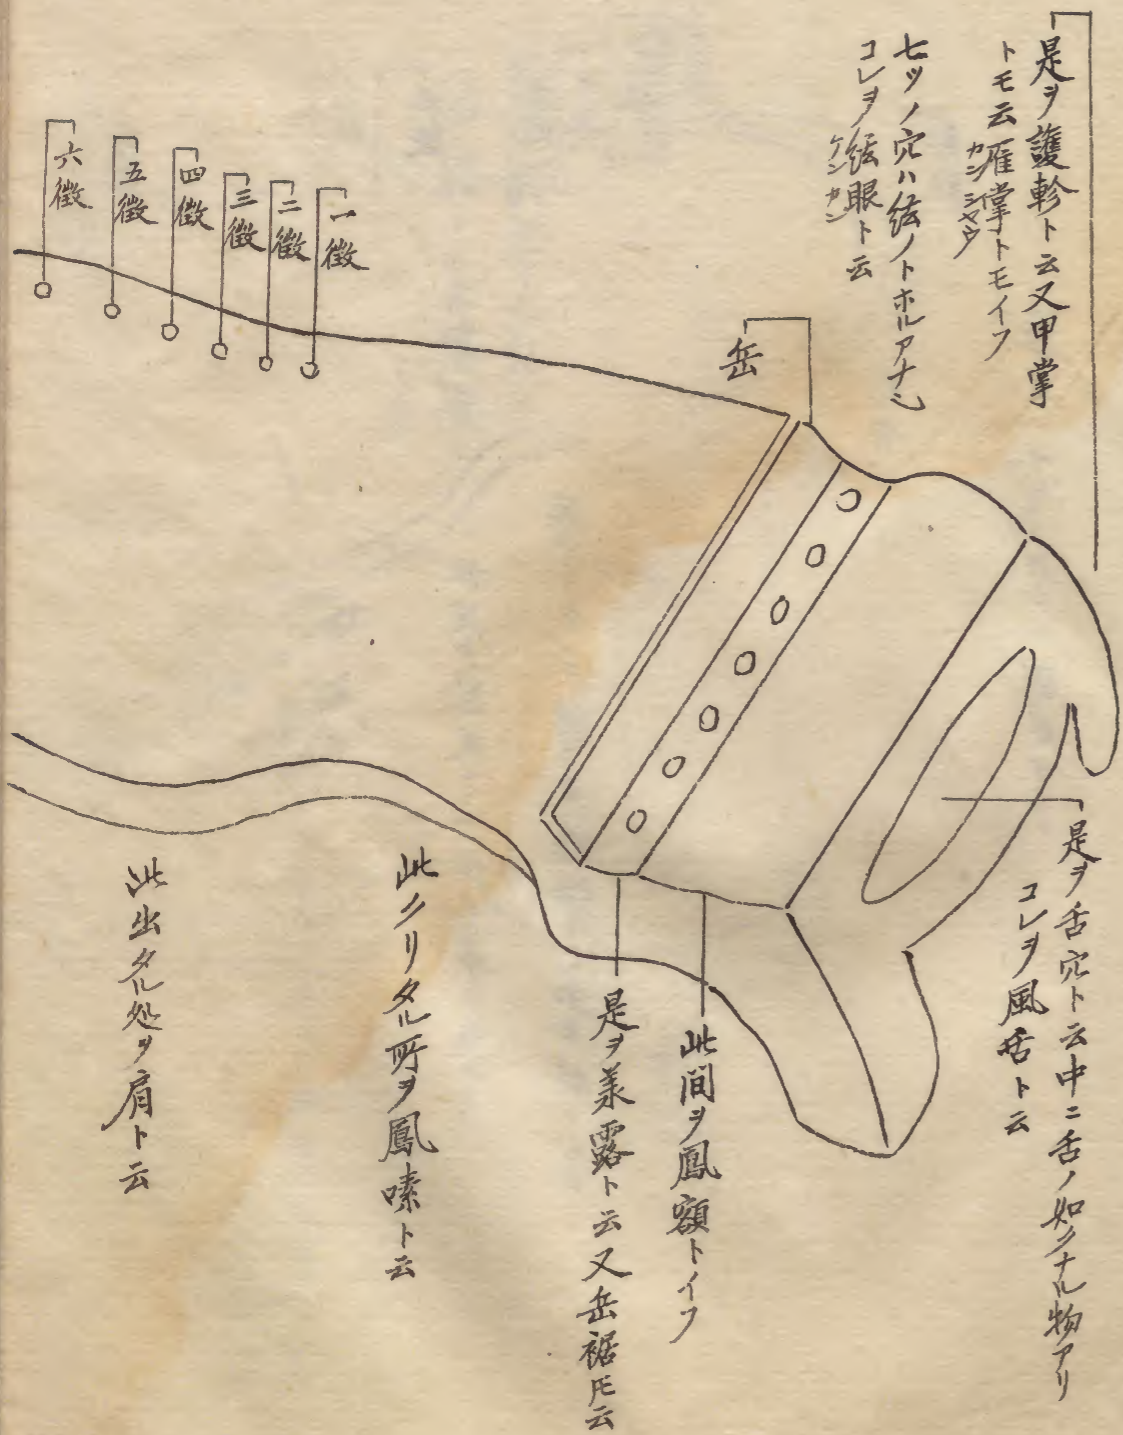 是ヲ護軫ト云又甲掌
トモ云雁掌トモイフ
カンシヤウ
七ツノ穴ハ絃ノトホルアナ也
コレヲ絃眼ト云
ケンカン
岳
一徽
二徽
三徽
四徽
五徽
六徽
是ヲ舌穴ト云中ニ舌ノ如クナル物アリ
コレヲ風舌ト云
此間ヲ鳳額トイフ
是ヲ羕露ト云又岳裾𪜈云
此クリタル所ヲ鳳嗉ト云
此出タル処ヲ肩ト云